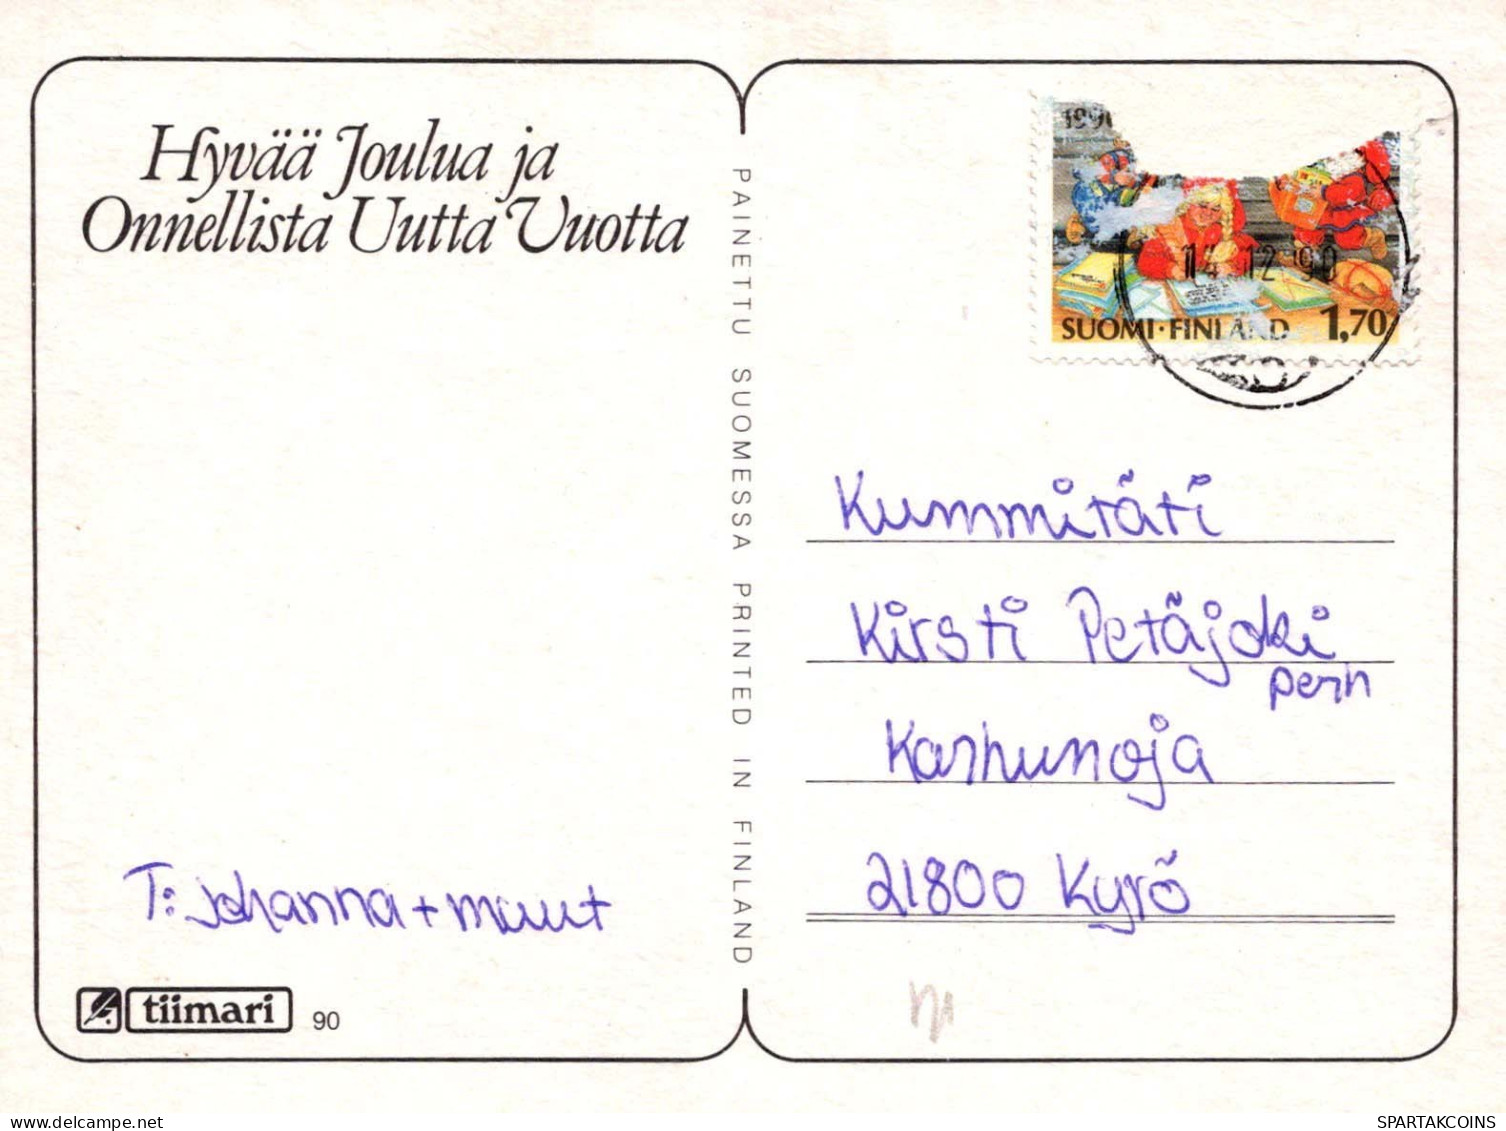 Hyvää Joulua ja
Onnellista Uutta Vuotta
T: Johanna + muut
tiimari 90
PAINETTU SUOMESSA PRINTED IN FINLAND
1990
SUOMI·FINLAND 1,70
14.12.90
Kummitäti
Kirsti Petäjoki
perh
Karhunoja
21800 Kyrö
www.delcampe.net
postikortti2019
SPARTAKCOINS